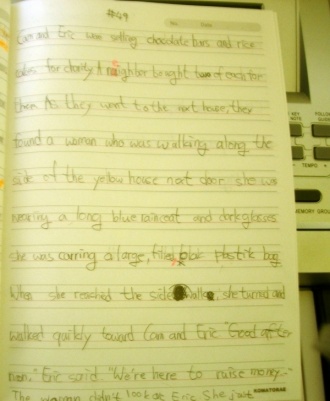 #49
No. Date
Cam and Eric was selling chocolate bars and rice
cakes for charity A neighbor bought two of each for
them As they went to the next house, they
found a woman who was walking along the
side of the yellow house next door. she was
wearing a long blue raincoat and dark glasses
she was carring a large, filled plastik bag
When she reached the side walk, she turned and
walked quickly toward Cam and Eric "Good after
noon." Eric said "We're here to raise money-"
The woman didn't look at Eric She just
KEY NOTE
FOLLOW
TEMPO
MEMORY